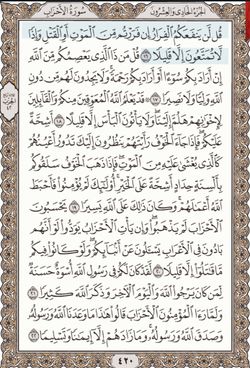 الجزء الحادي والعشرون
سورة الأحزاب
قُل لَّن يَنفَعَكُمُ ٱلْفِرَارُ إِن فَرَرْتُم مِّنَ ٱلْمَوْتِ أَوِ ٱلْقَتْلِ وَإِذًا
لَّا تُمَتَّعُونَ إِلَّا قَلِيلًا ١٦ قُلْ مَن ذَا ٱلَّذِى يَعْصِمُكُم مِّنَ ٱللَّهِ
إِنْ أَرَادَ بِكُمْ سُوٓءًا أَوْ أَرَادَ بِكُمْ رَحْمَةً وَلَا يَجِدُونَ لَهُم مِّن دُونِ
ٱللَّهِ وَلِيًّا وَلَا نَصِيرًا ١٧ ۞ قَدْ يَعْلَمُ ٱللَّهُ ٱلْمُعَوِّقِينَ مِنكُمْ وَٱلْقَآئِلِينَ
لِإِخْوَٰنِهِمْ هَلُمَّ إِلَيْنَا وَلَا يَأْتُونَ ٱلْبَأْسَ إِلَّا قَلِيلًا ١٨ أَشِحَّةً
عَلَيْكُمْ فَإِذَا جَآءَ ٱلْخَوْفُ رَأَيْتَهُمْ يَنظُرُونَ إِلَيْكَ تَدُورُ أَعْيُنُهُمْ
كَٱلَّذِى يُغْشَىٰ عَلَيْهِ مِنَ ٱلْمَوْتِ فَإِذَا ذَهَبَ ٱلْخَوْفُ سَلَقُوكُم
بِأَلْسِنَةٍ حِدَادٍ أَشِحَّةً عَلَى ٱلْخَيْرِ أُو۟لَٰٓئِكَ لَمْ يُؤْمِنُوا۟ فَأَحْبَطَ
ٱللَّهُ أَعْمَٰلَهُمْ وَكَانَ ذَٰلِكَ عَلَى ٱللَّهِ يَسِيرًا ١٩ يَحْسَبُونَ
ٱلْأَحْزَابَ لَمْ يَذْهَبُوا۟ وَإِن يَأْتِ ٱلْأَحْزَابُ يَوَدُّوا۟ لَوْ أَنَّهُم
بَادُونَ فِى ٱلْأَعْرَابِ يَسْـَٔلُونَ عَنْ أَنۢبَآئِكُمْ وَلَوْ كَانُوا۟ فِيكُم
مَّا قَٰتَلُوٓا۟ إِلَّا قَلِيلًا ٢٠ لَّقَدْ كَانَ لَكُمْ فِى رَسُولِ ٱللَّهِ أُسْوَةٌ حَسَنَةٌ
لِّمَن كَانَ يَرْجُوا۟ ٱللَّهَ وَٱلْيَوْمَ ٱلْءَاخِرَ وَذَكَرَ ٱللَّهَ كَثِيرًا ٢١
وَلَمَّا رَءَا ٱلْمُؤْمِنُونَ ٱلْأَحْزَابَ قَالُوا۟ هَٰذَا مَا وَعَدَنَا ٱللَّهُ وَرَسُولُهُۥ
وَصَدَقَ ٱللَّهُ وَرَسُولُهُۥ وَمَا زَادَهُمْ إِلَّآ إِيمَٰنًا وَتَسْلِيمًا ٢٢
٤٢٠